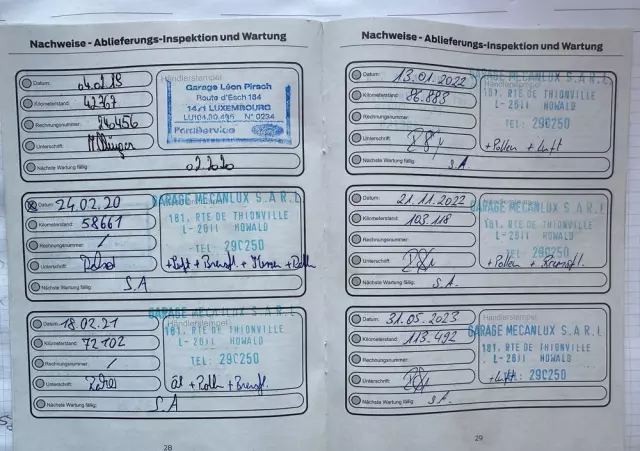 Nachweise - Ablieferungs-Inspektion und Wartung
Datum: 04.02.19
Händlerstempel
Kilometerstand: 42767
Rechnungsnummer:
Unterschrift:
Garage Léon Pirsch
Route d'Esch 184
1471 LUXEMBOURG
N° 0234
FordService
Nächste Wartung fällig: 02.2020
Datum: 24.02.20
Kilometerstand: 58661
Rechnungsnummer: /
Unterschrift:
GARAGE MECANLUX S.A R.L
181. RTE DE THIONVILLE
L-2611 HOWALD
TEL: 290250
+ Luft + Bremsfl.
Nächste Wartung fällig: S.A
Datum: 18.02.21
Händlerstempel
Kilometerstand: 72102
Rechnungsnummer: /
Unterschrift:
GARAGE MECANLUX S.A R.L
181. RTE DE THIONVILLE
L-2611 HOWALD
TEL: 290250
Öl + Pollen + Bremsfl.
Nächste Wartung fällig: S.A
28
Nachweise - Ablieferungs-Inspektion und Wartung
Datum: 13.01.2022
Kilometerstand: 86.883
Rechnungsnummer:
Unterschrift:
GARAGE MECANLUX S.A R.L
181. RTE DE THIONVILLE
L-2611 HOWALD
TEL: 290250
+ Pollen + Luft
Nächste Wartung fällig: S.A
Datum: 21.11.2022
Kilometerstand: 103.118
Rechnungsnummer:
Unterschrift:
GARAGE MECANLUX S.A R.L
181. RTE DE THIONVILLE
L-2611 HOWALD
TEL: 290250
+ Pollen + Bremsfl.
Nächste Wartung fällig: S.A.
Datum: 31.05.2023
Händlerstempel
Kilometerstand: 113.492
Rechnungsnummer:
Unterschrift:
GARAGE MECANLUX S.A R.L
181. RTE DE THIONVILLE
L-2611 HOWALD
TEL: 290250
+ Luft
Nächste Wartung fällig: S.A.
29